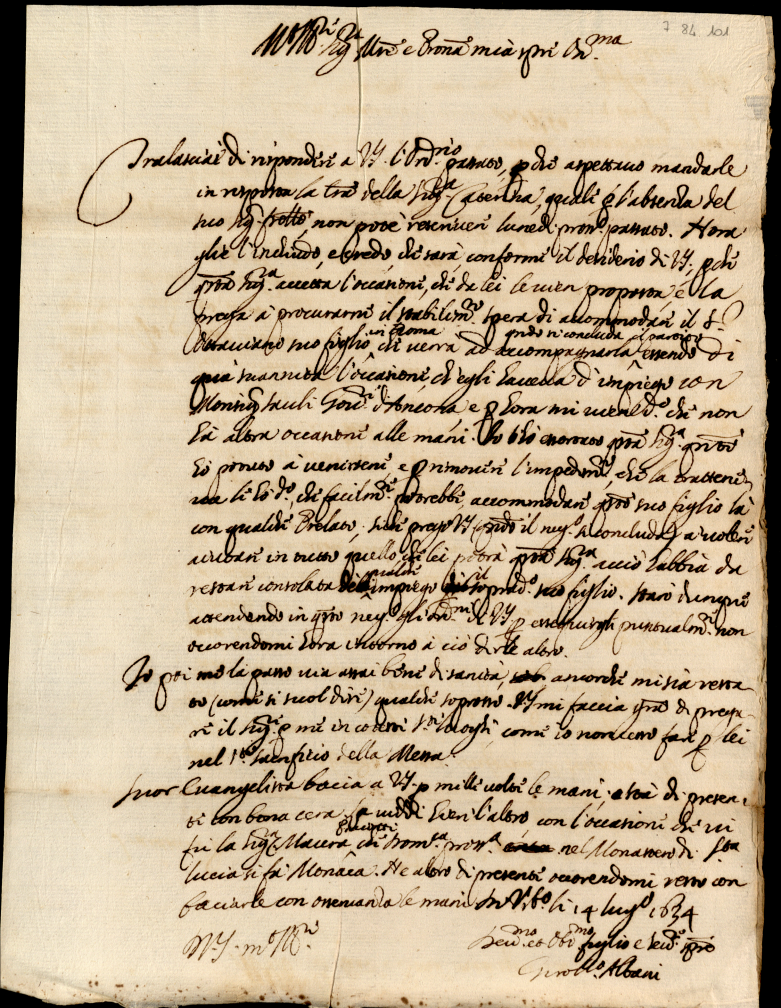 7 84 101
M.to Ill.re Sig.ra M.re e Pron.a mia sp.re Oss.ma
Tralasciai di rispondere a V.S. l'Ord.rio passato, p che aspettavo mandarle
in risposta la l'ra della Sig.ra Caterina, quale p l'absenza del
suo Sig. fr'ello, non poté rescrivere lunedi pros.o passato. Hora
glie l'includo, e credo che sarà conforme il desiderio di V.S., p che
q'sta Sig.ra accetta l'occasione, che da lei le vien proposta e la
prega à procurarne il stabilim.to spera di accommodare il S.r
Ottaviano suo figlio in Roma che verrà ad accompagnarla q'ndo si concluda il partito essendo di
già svanita l'occasione ch'egli haveva d'impiego con
Monsig. Sauli Gov.re d'Ancona e p hora mi vien d.o che non
hà altra occasione alle mani. Io hò essortato q'sta Sig.ra q'nto
hò potuto à venirsene, e p rimovere l'impedim.to che la trattene
va le hò d.o, che facilm.te potrebbe accommodare q'sto suo figlio là
con qualche Prelato. Si che prego V.S. (q'ndo il neg.o si concluda) a voler
aiutare in tutto quello che lei potrà q'sta Sig.ra acciò habbia da
restare consolata dell'impiego del soprad.o suo figlio. Starò dunque
attendendo in q'sto neg.o gli ord.ni di V.S. p esseguirgli puntualm.te non
occorrendomi hora intorno à ciò dirle altro.
Io poi me la passo via assai bene di sanità, ancorche mi sia resta
to (come si suol dire) qualche soprosso. V.S. mi faccia gra' di prega
re il Sig.re p me in cotesti S.ti luoghi, come io non cesso fare p lei
nel S.to Sacrificio della Messa.
Suor Evangelista bacia a V.S. p mille volte le mani, e stà di presen
te con bona cera. La viddi hieri l'altro con l'occasione che vi
fù la Sig.ra Maura che Dom.ca pross.a nel Monastero di S.ta
Lucia si fà Monaca. Ne altro di presente occorrendomi resto con
baciarle con osservanza le mani. In Urb.o li 14 lug.o 1634
D. V.S. m.to Ill.re
Dev.mo et Obl.mo figlio e serv.re sp.re
Girol.o Albani